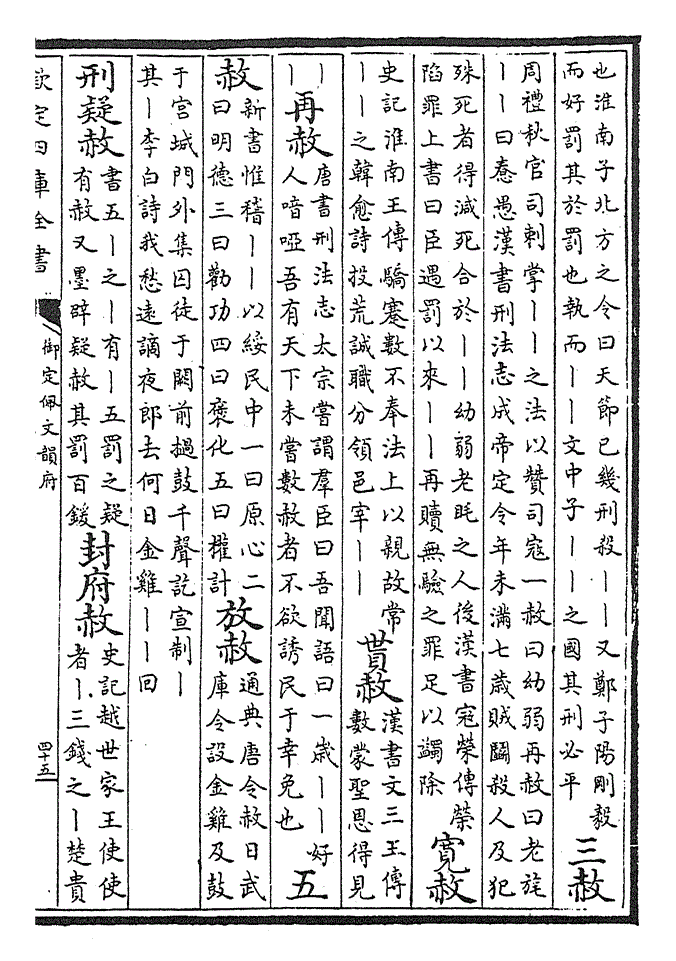 也淮南子北方之令曰天節已幾刑殺丨丨又鄭子陽剛毅
而好罰其於罰也執而丨丨文中子丨丨之國其刑必平
三赦
周禮秋官司刺掌丨丨之法以贊司寇一赦曰幼弱再赦曰老旄
丨丨曰惷愚漢書刑法志成帝定令年未滿七歲賊鬭殺人及犯
殊死者得減死合於丨丨幼弱老眊之人後漢書寇榮傳榮
陷罪上書曰臣遇罰以來丨丨再贖無驗之罪足以蠲除
寬赦
史記淮南王傳驕蹇數不奉法上以親故常
丨丨之韓愈詩投荒誠職分領邑宰丨丨
貰赦
漢書文三王傳
數蒙聖恩得見
丨
丨
再赦
唐書刑法志太宗嘗謂羣臣曰吾聞語曰一歲丨丨好
人喑啞吾有天下未嘗數赦者不欲誘民于幸免也
五
赦
新書惟稽丨丨以綏民中一曰原心二
曰明德三曰勸功四曰褒化五曰權計
放赦
通典唐令赦日武
庫令設金雞及鼓
于宮城門外集囚徒于闕前撾鼓千聲訖宣制丨
其丨李白詩我愁遠謫夜郎去何日金雞丨丨回
刑疑赦
書五丨之丨有丨五罰之疑
有赦又墨辟疑赦其罰百鍰
封府赦
史記越世家王使使
者丨三錢之丨楚貴
欽定四庫全書
御定佩文韻府
四十五